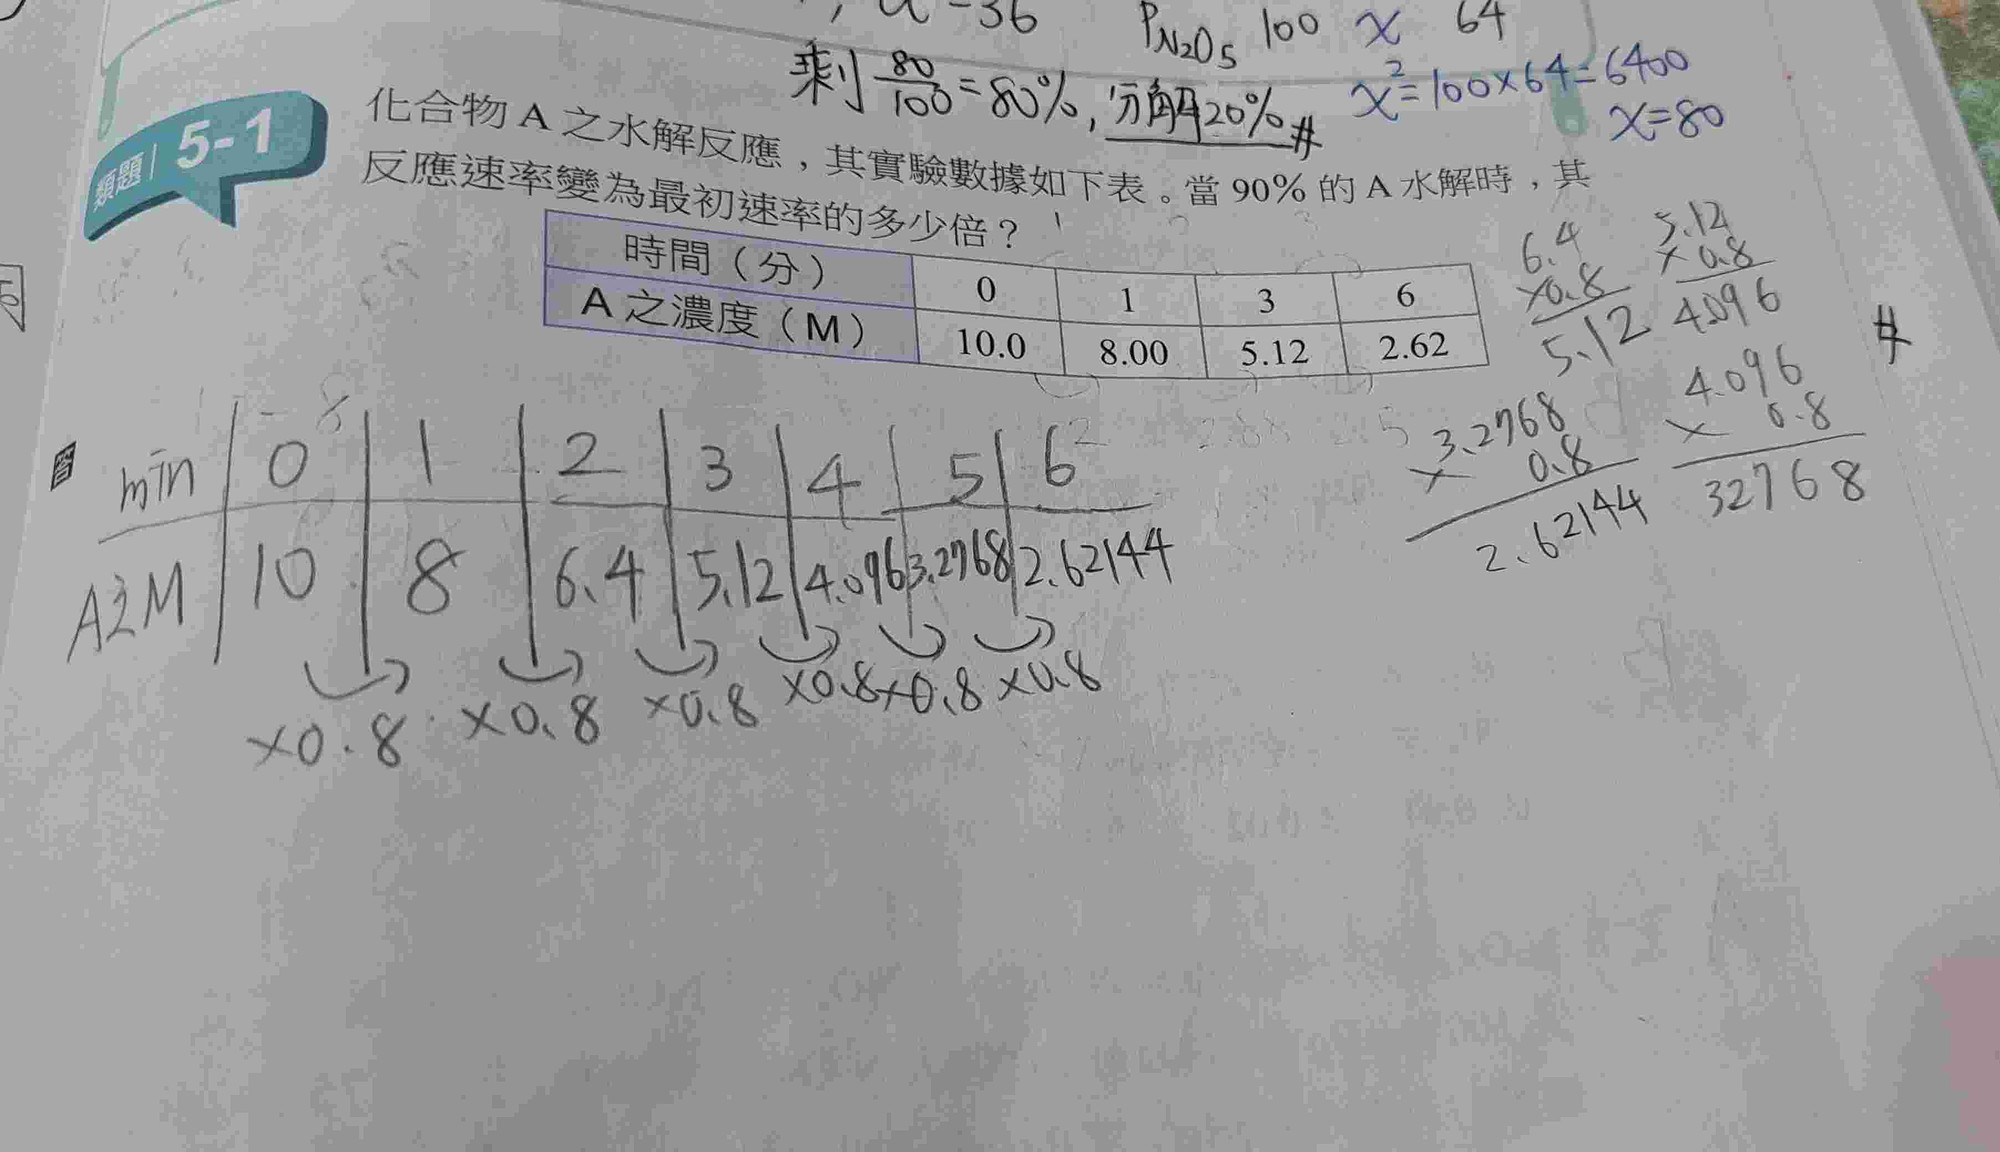 , a=36 P_N₂O₅ 100 x 64
剩 80/100 = 80%, 分解20% #
x² = 100×64 = 6400
x = 80
類題 5-1
化合物 A 之水解反應，其實驗數據如下表。當 90% 的 A 水解時，其
反應速率變為最初速率的多少倍？
時間（分） 0 1 3 6
A 之濃度（M） 10.0 8.00 5.12 2.62
6.4
×0.8
5.12
5.12
×0.8
4.096
#
4.096
× 0.8
32768
3.2768
× 0.8
2.62144
答
min 0 1 2 3 4 5 6
A之M 10 8 6.4 5.12 4.096 3.2768 2.62144
×0.8 ×0.8 ×0.8 ×0.8 ×0.8 ×0.8